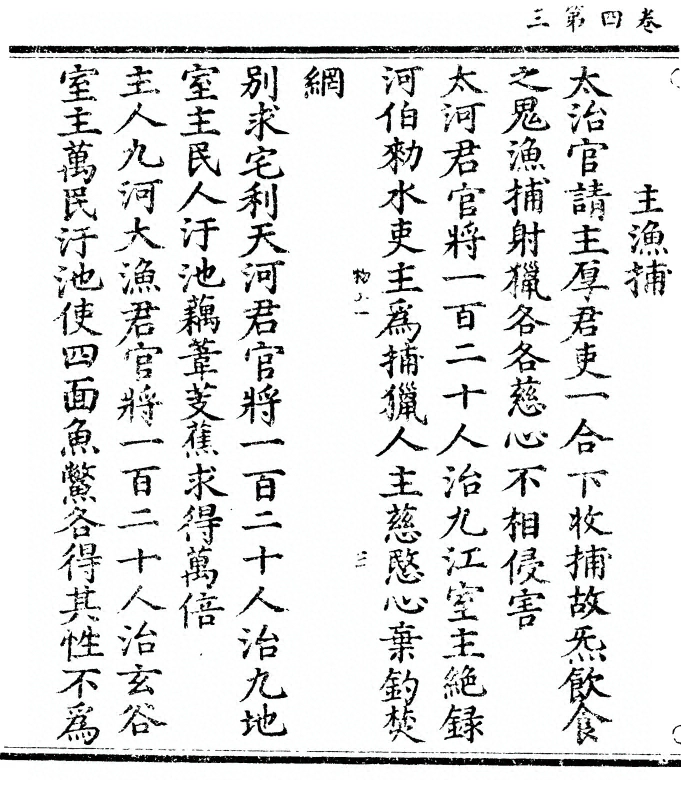 卷四第三
主漁捕
太治官請主厚君吏一合下收捕故炁飲食
之鬼漁捕射獵各各慈心不相侵害
太河君官將一百二十人治九江室主絶録
河伯勑水吏主爲捕獵人主慈愍心棄釣焚
網
別求宅利天河君官將一百二十人治九地
室主民人汙池藕葦芰蕉求得萬倍
主人九河大漁君官將一百二十人治玄谷
室主萬民汙池使四面魚鱉各得其性不爲